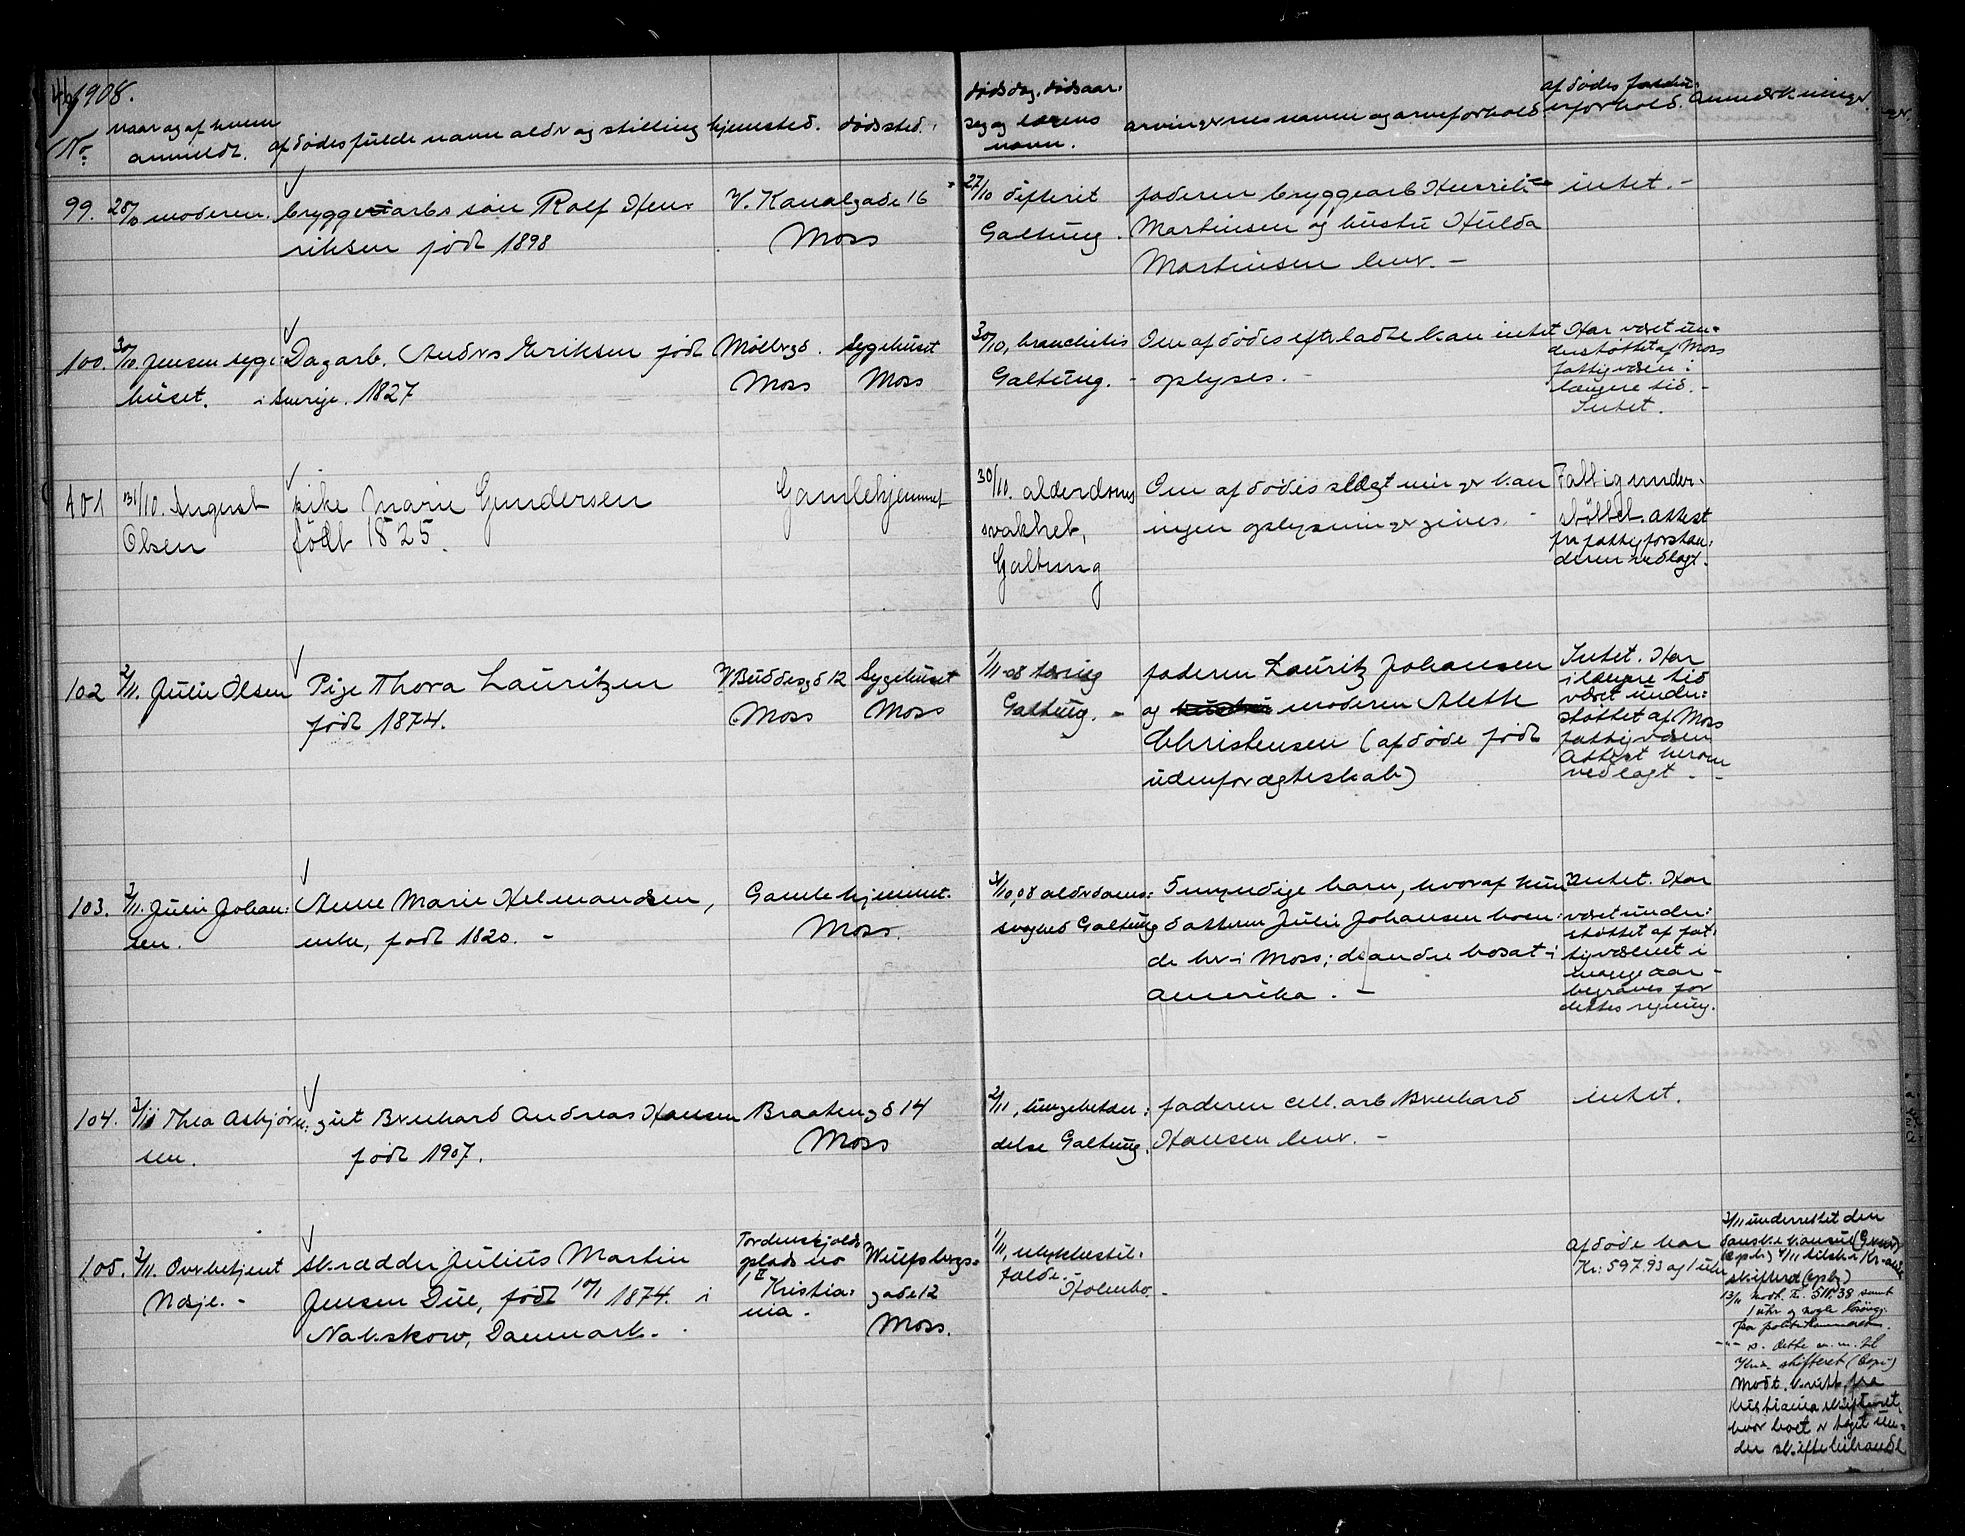 1908.
No
naar og af hvem
anmeldt.
afdødes fulde navn alder og stilling
hjemsted.
dødsted.
dødsdag. dødsaar.
navn.
arvingernes navne og arveforhold
afdødes
Anmerkninger
99.
28/10 moderen.
søn Rolf Hen
riksen født 1898
V. Kanalgade 16
Moss
27/10 difterit
Galtung.
faderen bryggearb Henrik
Martinsen og hustru Hulda
Martinsen her. -
intet. -
100.
30/10 Jensen syge
huset.
Dagarb. Anders Eriksen født
i Sverige. 1827
Møllergd.
Moss
Sygehuset
Moss
30/10, bronchitis
Galtung. -
Om afdødes efterladte kan intet
oplyses. -
Har været un-
derstøttet af Moss
fattigvæsen i
længere tid. -
Intet.
101
31/10. August
Olsen
pike Marie Gundersen
født 1825.
Gamlehjemmet
30/10. alderdoms
svakhet,
Galtung
Om afdødes slægtninger kan
ingen oplysninger gives. -
Fattigunder-
støttet. Attest
fra fattigforstan-
deren vedlagt.
102
2/11. Julie Olsen
Pige Thora Lauritzen
født 1874.
V Buddesgd 12
Moss
Sygehuset
Moss
1/11 08 tæring
Galtung. -
faderen Lauritz Johansen
og moderen Alethe
Christensen (afdøde født
udenfor ægteskab)
Intet. Har
i længre tid
været under-
støttet af Moss
fattigvæsen
Attest herom
vedlagt -
103.
2/11. Julie Johan-
sen.
Anne Marie Helmandsen,
enke, født 1820. -
Gamlehjemmet.
Moss.
31/10,08 alderdoms-
svaghed Galtung
5 myndige barn, hvoraf kun
datteren Julie Johansen boen-
de her i Moss; de andre bosat i
Amerika. -
Intet. Har
været under-
støttet af fat-
tigvæsenet i
mange aar -
begraves for
dettes regning.
104.
3/11 Thea Asbjørn-
sen.
gut Bernhard Andreas Hansen
født 1907.
Braatengd 14
Moss
2/11, lungebetæn-
delse Galtung.
faderen cell. arb Bernhard
Hansen her. -
intet.
105.
2/11. Overbetjent
Næsje. -
skrædder Julius Martin
Jensen Due, født 10/1 1874. i
Nakskow, Danmark. -
Tordenskjolds
plads no
1 II Kristia-
nia.
Wulfsbergs-
gade 12
Moss.
1/11, ulykkestil-
fælde. -
Holmbo. -
Afdøde har
Kr: 597.93 og 1 uhr
3/11 underrettet den
danske konsul
skifteret (copb)
13/11 modt. kr. 511.38 samt
1 uhr og nogle
paa politikammeret.
skifteret
Modt. fra
Kristiania skifteret,
hvor boet er taget un-
der skiftebehandl